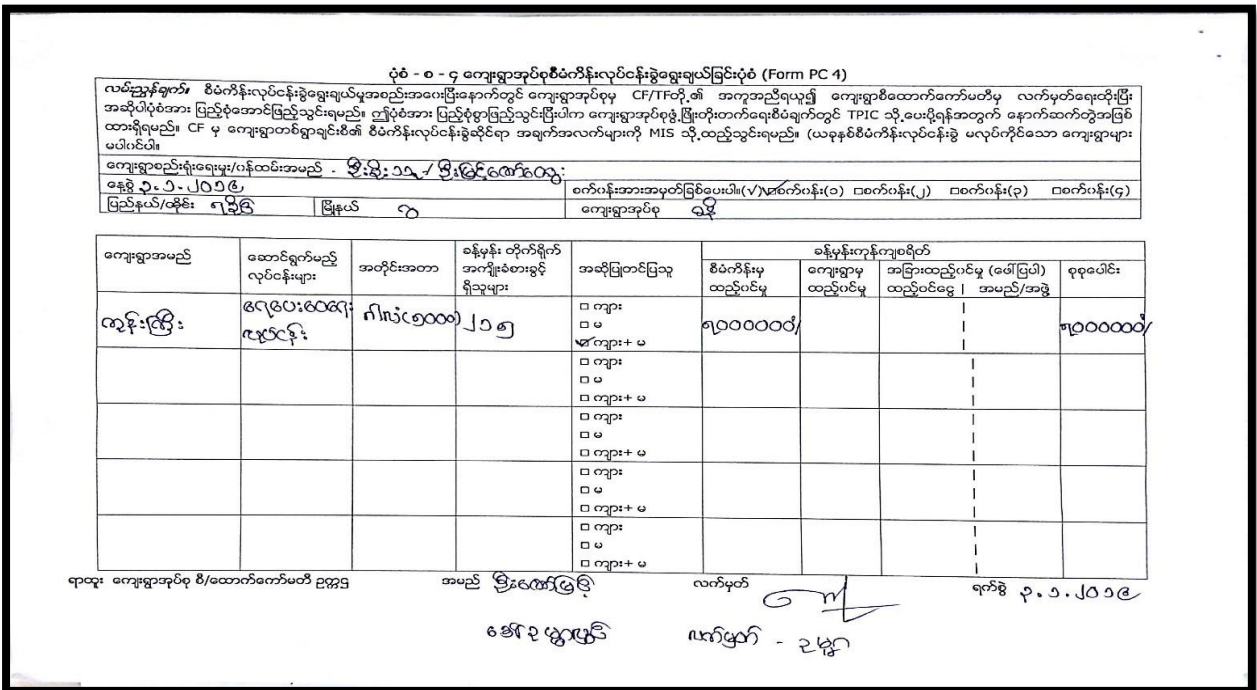 ပုံစံ - စ - ၄ ကျေးရွာအုပ်စုစီမံကိန်းလုပ်ငန်းခွဲရွေးချယ်ခြင်းပုံစံ (Form PC 4)
လမ်းညွှန်ချက်။ စီမံကိန်းလုပ်ငန်းခွဲရွေးချယ်မှုအစည်းအဝေးပြီးနောက်တွင် ကျေးရွာအုပ်စုမှ CF/TFတို့၏ အကူအညီရယူ၍ ကျေးရွာစီထောက်ကော်မတီမှ လက်မှတ်ရေးထိုးပြီး
အဆိုပါပုံစံအား ပြည့်စုံအောင်ဖြည့်သွင်းရမည်။ ဤပုံစံအား ပြည့်စုံစွာဖြည့်သွင်းပြီးပါက ကျေးရွာအုပ်စုဖွံ့ဖြိုးတိုးတက်ရေးစီမံချက်တွင် TPIC သို့ပေးပို့ရန်အတွက် နောက်ဆက်တွဲအဖြစ်
ထားရှိရမည်။ CF မှ ကျေးရွာတစ်ရွာချင်းစီ၏ စီမံကိန်းလုပ်ငန်းခွဲဆိုင်ရာ အချက်အလက်များကို MIS သို့ထည့်သွင်းရမည်။ (ယခုနှစ်စီမံကိန်းလုပ်ငန်းခွဲ မလုပ်ကိုင်သော ကျေးရွာများ
မပါဝင်ပါ။
ကျေးရွာစည်းရုံးရေးမှူး/ဝန်ထမ်းအမည် -
နေ့စွဲ ၃.၁.၂၀၁၉ စက်ဝန်းအားအမှတ်ခြစ်ပေးပါ။(√) ☑စက်ဝန်း(၁) □စက်ဝန်း(၂) □စက်ဝန်း(၃) □စက်ဝန်း(၄)
ပြည်နယ်/တိုင်း ရခိုင် မြို့နယ် ဂွ ကျေးရွာအုပ်စု
ကျေးရွာအမည် ဆောင်ရွက်မည့် လုပ်ငန်းများ အတိုင်းအတာ ခန့်မှန်း တိုက်ရိုက် အကျိုးခံစားခွင့် ရှိသူများ အဆိုပြုတင်ပြသူ ခန့်မှန်းကုန်ကျစရိတ်
စီမံကိန်းမှ ထည့်ဝင်မှု ကျေးရွာမှ ထည့်ဝင်မှု အခြားထည့်ဝင်မှု (ဖေါ်ပြပါ) ထည့်ဝင်ငွေ | အမည်/အဖွဲ့ စုစုပေါင်း
ကုန်းကြီး ရေပေးဝေရေး လုပ်ငန်း ဂါလံ(၅၀၀၀) ၂၁၅ ၇၀၀၀၀၀၀ိ/ ၇၀၀၀၀၀၀ိ/
□ ကျား
□ မ
☑ ကျား+ မ
□ ကျား
□ မ
□ ကျား+ မ
□ ကျား
□ မ
□ ကျား+ မ
□ ကျား
□ မ
□ ကျား+ မ
□ ကျား
□ မ
□ ကျား+ မ
ရာထူး ကျေးရွာအုပ်စု စီ/ထောက်ကော်မတီ ဥက္ကဋ္ဌ အမည် လက်မှတ် ရက်စွဲ ၃.၁.၂၀၁၉
လက်မှတ် -